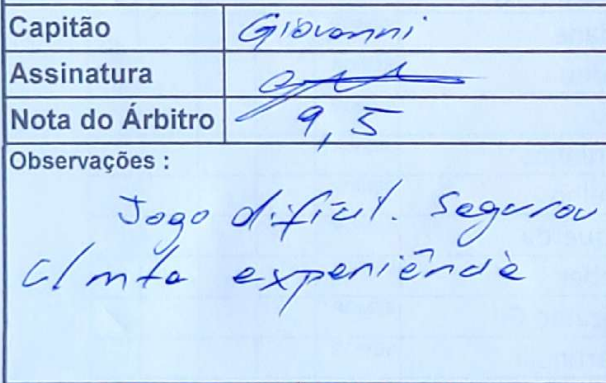 Capitão Giovanni
Assinatura
Nota do Árbitro 9,5
Observações :
Jogo difícil. Segurou
c/ mta experiência